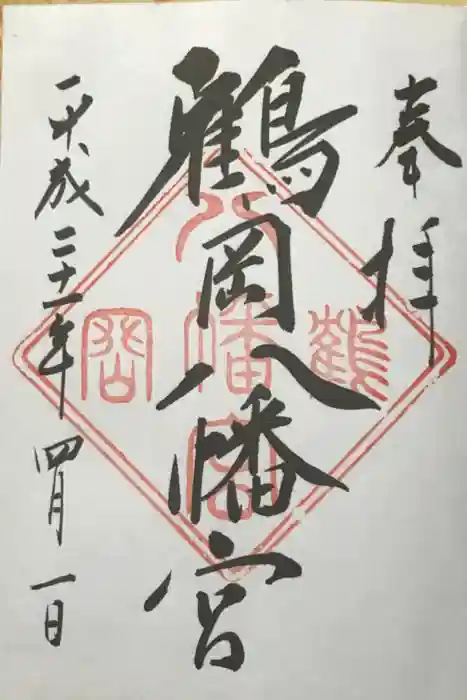 奉拝
鶴岡八幡宮
平成二十一年四月一日
鶴
八幡宮
岡